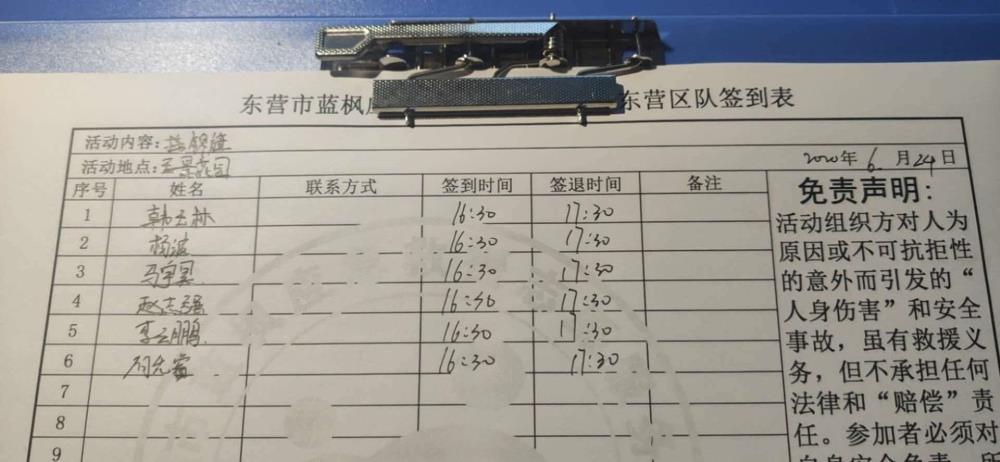 东营市蓝枫 东营区队签到表
活动内容:
活动地点:
2020年 6月24日
序号 姓名 联系方式 签到时间 签退时间 备注
1 韩玉林 16:30 17:30
2 杨波 16:30 17:30
3 马宇昊 16:30 17:30
4 赵志强 16:30 17:30
5 李云鹏 16:30 17:30
6 16:30 17:30
7
8
9
免责声明:
活动组织方对人为
原因或不可抗拒性
的意外而引发的“
人身伤害”和安全
事故，虽有救援义
务，但不承担任何
法律和“赔偿”责
任。参加者必须对